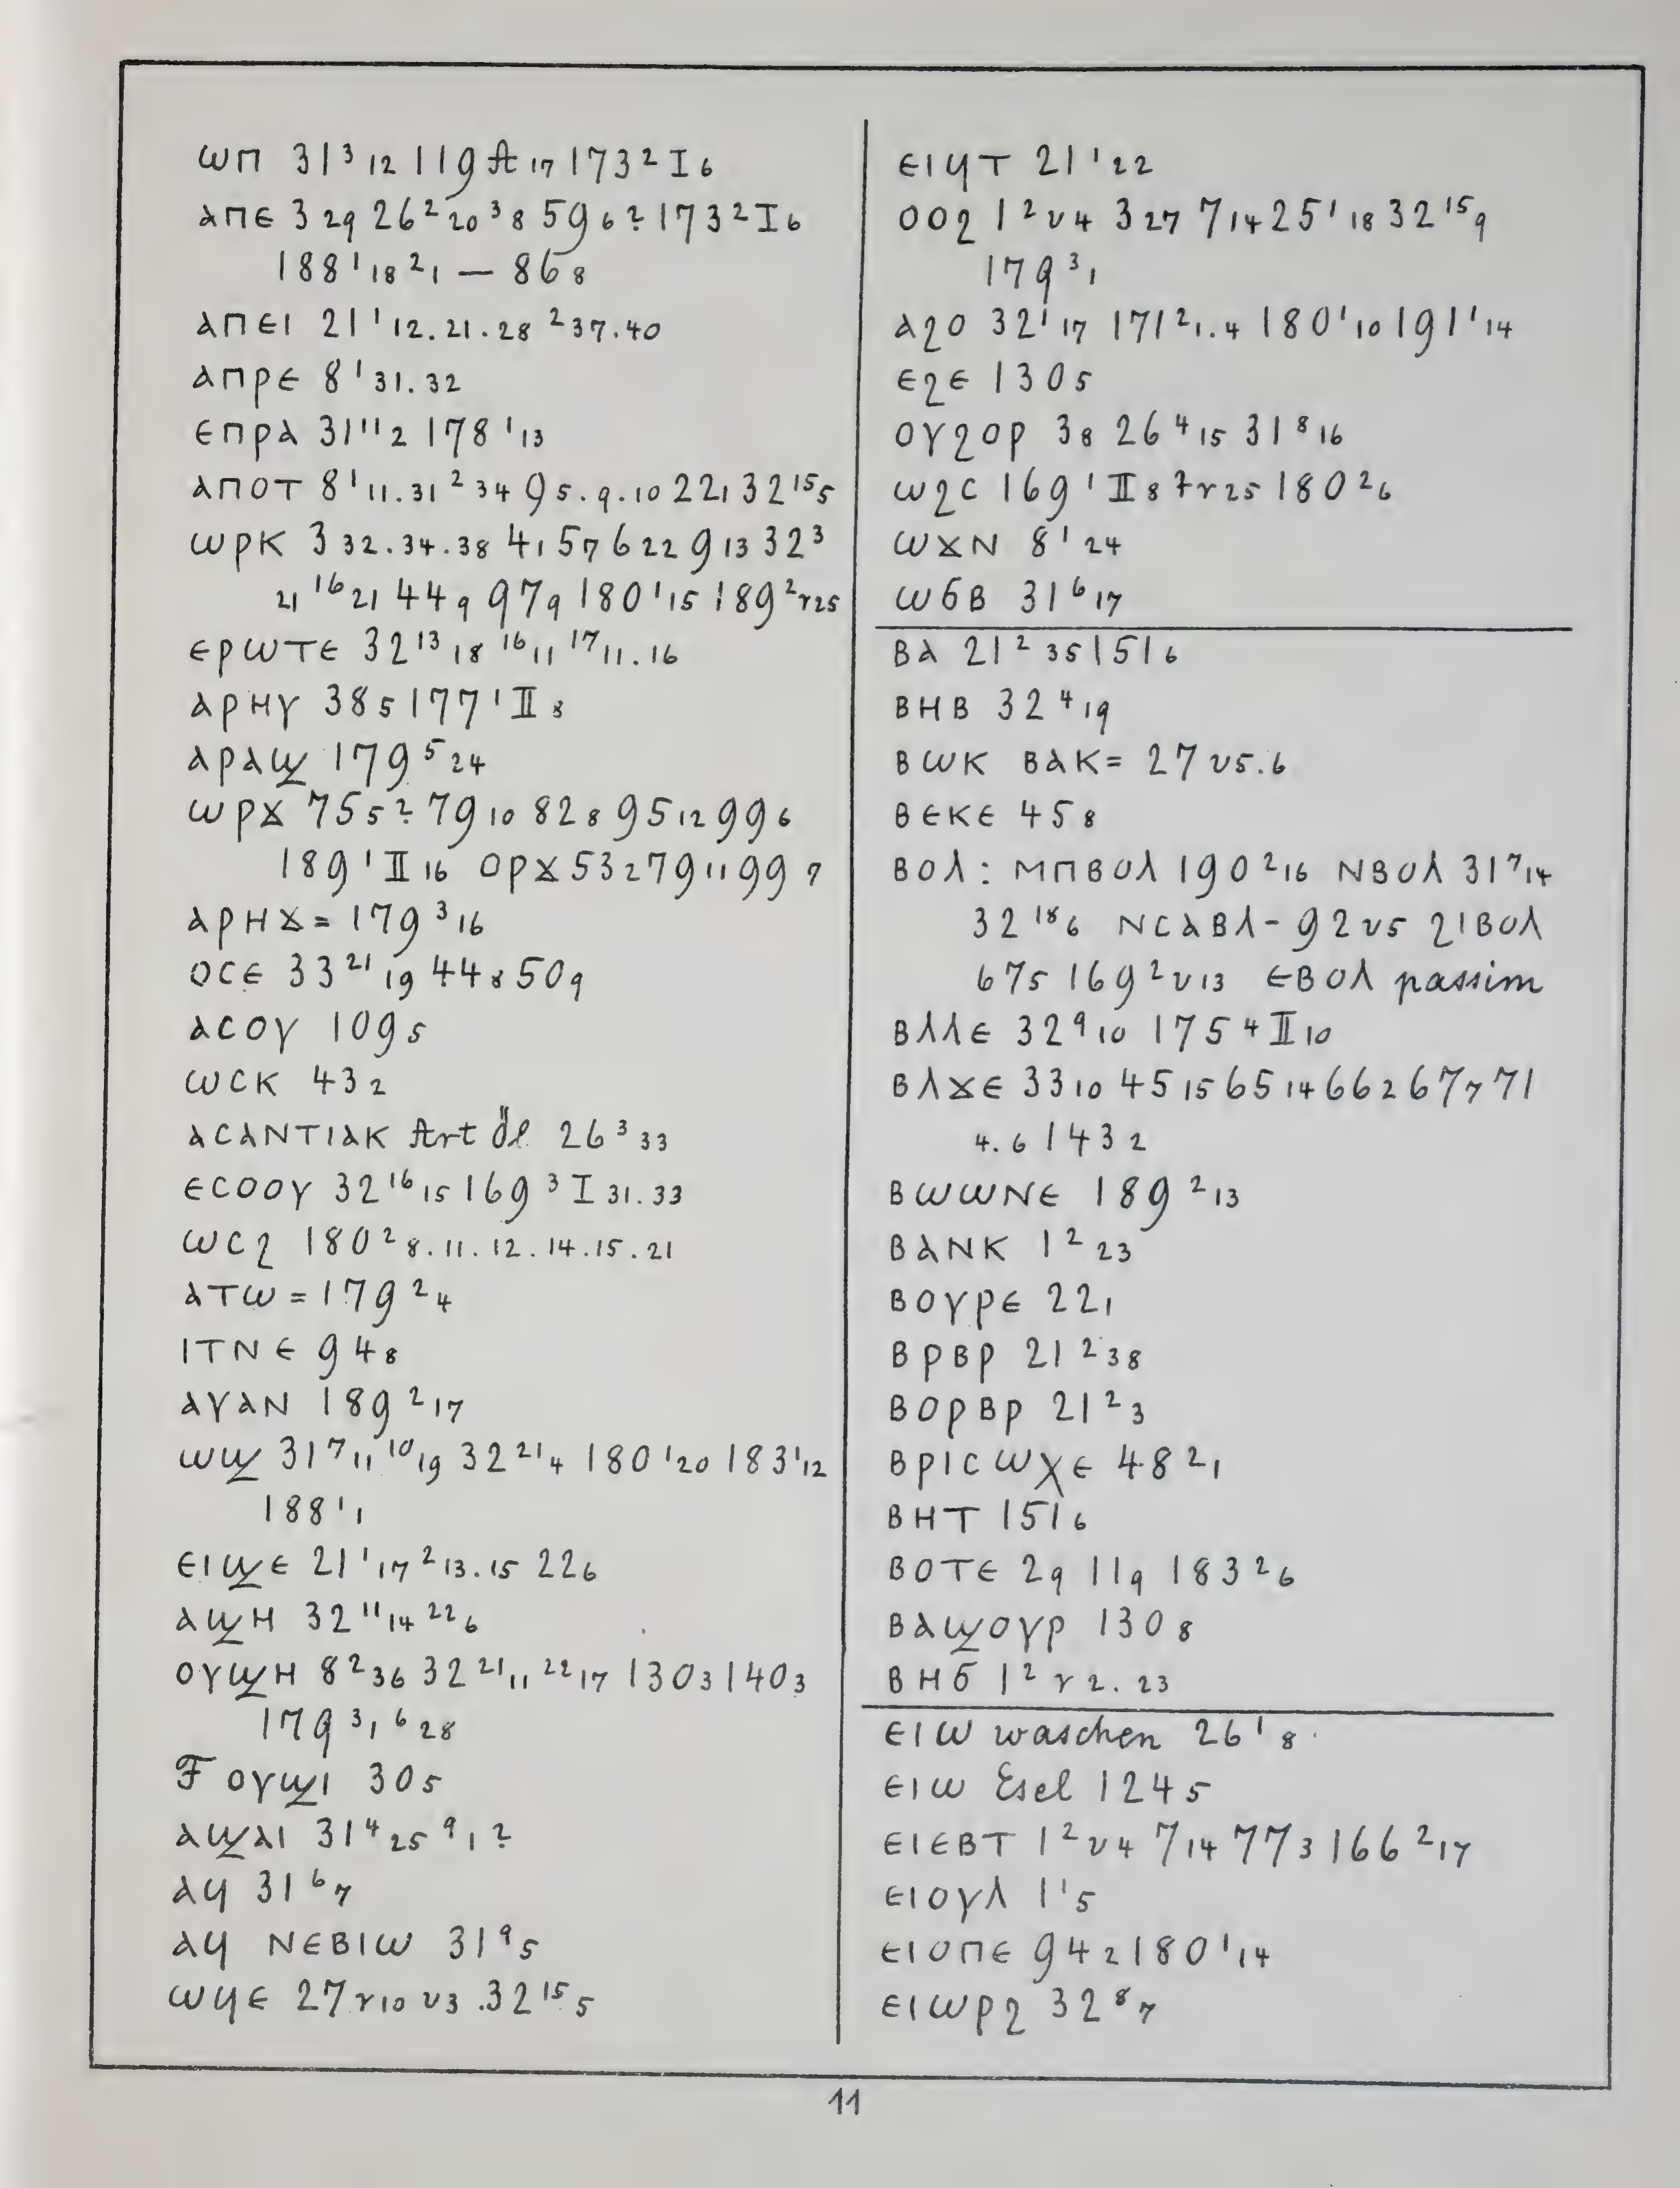 ⲱⲡ 31³₁₂ 119 A ₁₇ 173² I ₆
ⲁⲡⲉ 3 ₂₉ 26²₂₀ ³₈ 59 ₆? 173² I ₆
188¹₁₈ ²₁ — 86 ₈
ⲁⲡⲉⲓ 21¹ ₁₂.₂₁.₂₈ ²₃₇.₄₀
ⲁⲡⲣⲉ 8¹ ₃₁.₃₂
ⲉⲡⲣⲁ 31¹¹₂ 178¹₁₃
ⲁⲡⲟⲧ 8¹ ₁₁.₃₁ ²₃₄ 9 ₅.₉.₁₀ 22₁ 32¹⁵₅
ⲱⲣⲕ 3 ₃₂.₃₄.₃₈ 4₁ 5₇ 6₂₂ 9₁₃ 32³
₂₁ ¹⁶₂₁ 44₉ 97₉ 180¹₁₅ 189² r₂₅
ⲉⲣⲱⲧⲉ 32¹³₁₈ ¹⁶₁₁ ¹⁷₁₁.₁₆
ⲁⲣⲏⲩ 38₅ 177¹ II ₈
ⲁⲣⲁϣ 179⁵₂₄
ⲱⲣϫ 75₅? 79₁₀ 82₈ 95₁₂ 99₆
189¹ II ₁₆ ⲟⲣϫ 53₂ 79₁₁ 99₇
ⲁⲣⲏϫ= 179³₁₆
ⲟⲥⲉ 33²¹₁₉ 44₈ 50₉
ⲁⲥⲟⲩ 109₅
ⲱⲥⲕ 43₂
ⲁⲥⲁⲛⲧⲓⲁⲕ Art Öl 26³₃₃
ⲉⲥⲟⲟⲩ 32¹⁶₁₅ 169³ I ₃₁.₃₃
ⲱⲥϩ 180² ₈.₁₁.₁₂.₁₄.₁₅.₂₁
ⲁⲧⲱ= 179²₄
ⲓⲧⲛⲉ 94₈
ⲁⲩⲁⲛ 189²₁₇
ⲱϣ 31⁷₁₁ ¹⁰₁₉ 32²¹₄ 180¹₂₀ 183¹₁₂
188¹₁
ⲉⲓϣⲉ 21¹₁₇ ²₁₃.₁₅ 22₆
ⲁϣⲏ 32¹¹₁₄ ²²₆
ⲟⲩϣⲏ 8²₃₆ 32²¹₁₁ ²²₁₇ 130₃ 140₃
179³₁ ⁶₂₈
F ⲟⲩϣⲓ 30₅
ⲁϣⲁⲓ 31⁴₂₅ ⁹₁?
ⲁϥ 31⁶₇
ⲁϥ ⲛⲉⲃⲓⲱ 31⁹₅
ⲱϥⲉ 27 r₁₀ v₃. 32¹⁵₅
ⲉⲓϥⲧ 21¹₂₂
ⲟⲟϩ 1² v₄ 3₂₇ 7₁₄ 25¹₁₈ 32¹⁵₉
179³₁
ⲁϩⲟ 32¹₁₇ 171²₁.₄ 180¹₁₀ 191¹₁₄
ⲉϩⲉ 130₅
ⲟⲩϩⲟⲣ 3₈ 26⁴₁₅ 31⁸₁₆
ⲱϩⲥ 169¹ II ₈ ⁊ r₂₅ 180²₆
ⲱϫⲛ 8¹₂₄
ⲱϭⲃ 31⁶₁₇
ⲃⲁ 21²₃₅ 151₆
ⲃⲏⲃ 32⁴₁₉
ⲃⲱⲕ ⲃⲁⲕ= 27 v₅.₆
ⲃⲉⲕⲉ 45₈
ⲃⲟⲗ: ⲙⲡⲃⲟⲗ 190²₁₆ ⲛⲃⲟⲗ 31⁷₁₄
32¹⁸₆ ⲛⲥⲁⲃⲗ- 92 v₅ ϩⲓⲃⲟⲗ
67₅ 169² v₁₃ ⲉⲃⲟⲗ passim
ⲃⲗⲗⲉ 32⁹₁₀ 175⁴ II ₁₀
ⲃⲗϫⲉ 33₁₀ 45₁₅ 65₁₄ 66₂ 67₇ 71
₄.₆ 143₂
ⲃⲱⲱⲛⲉ 189²₁₃
ⲃⲁⲛⲕ 1²₂₃
ⲃⲟⲩⲣⲉ 22₁
ⲃⲣⲃⲣ 21²₃₈
ⲃⲟⲣⲃⲣ 21²₃
ⲃⲣⲓⲥⲱⲭⲉ 48²₁
ⲃⲏⲧ 151₆
ⲃⲟⲧⲉ 2₉ 11₉ 183²₆
ⲃⲁϣⲟⲩⲣ 130₈
ⲃⲏϭ 1² r ₂.₂₃
ⲉⲓⲱ waschen 26¹₈
ⲉⲓⲱ Esel 124₅
ⲉⲓⲉⲃⲧ 1² v₄ 7₁₄ 77₃ 166²₁₇
ⲉⲓⲟⲩⲗ 1¹₅
ⲉⲓⲟⲡⲉ 94₂ 180¹₁₄
ⲉⲓⲱⲣϩ 32⁸₇
11